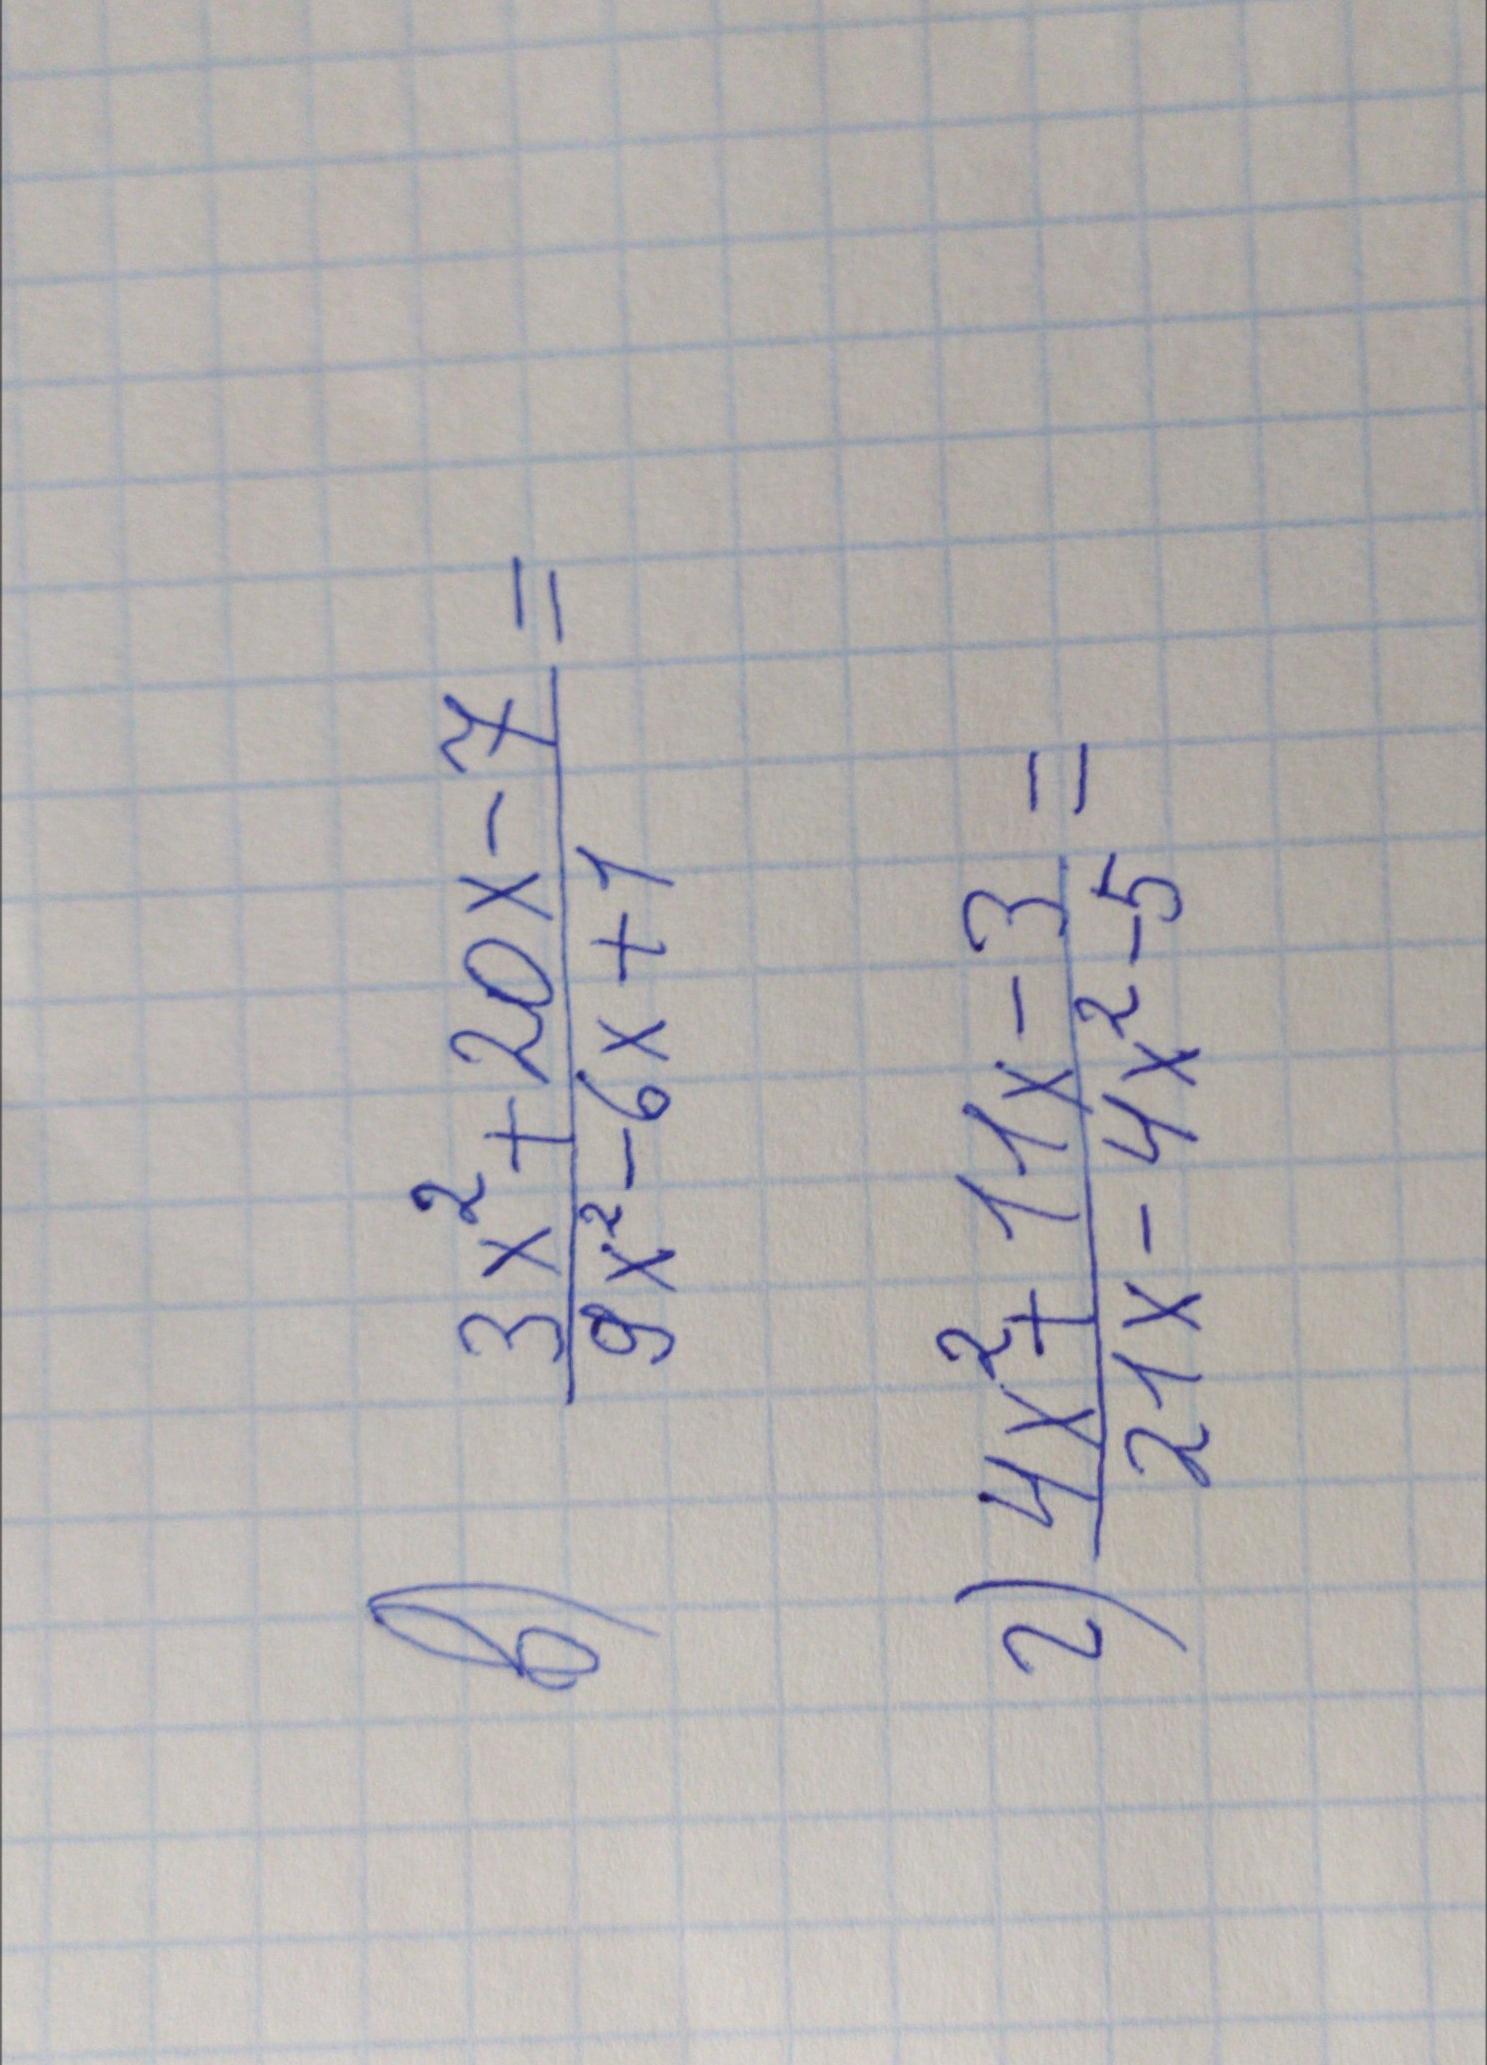 в) 3x² + 20x - 7 =
9x² - 6x + 1
г) 4x² + 11x - 3 =
21x - 4x² - 5